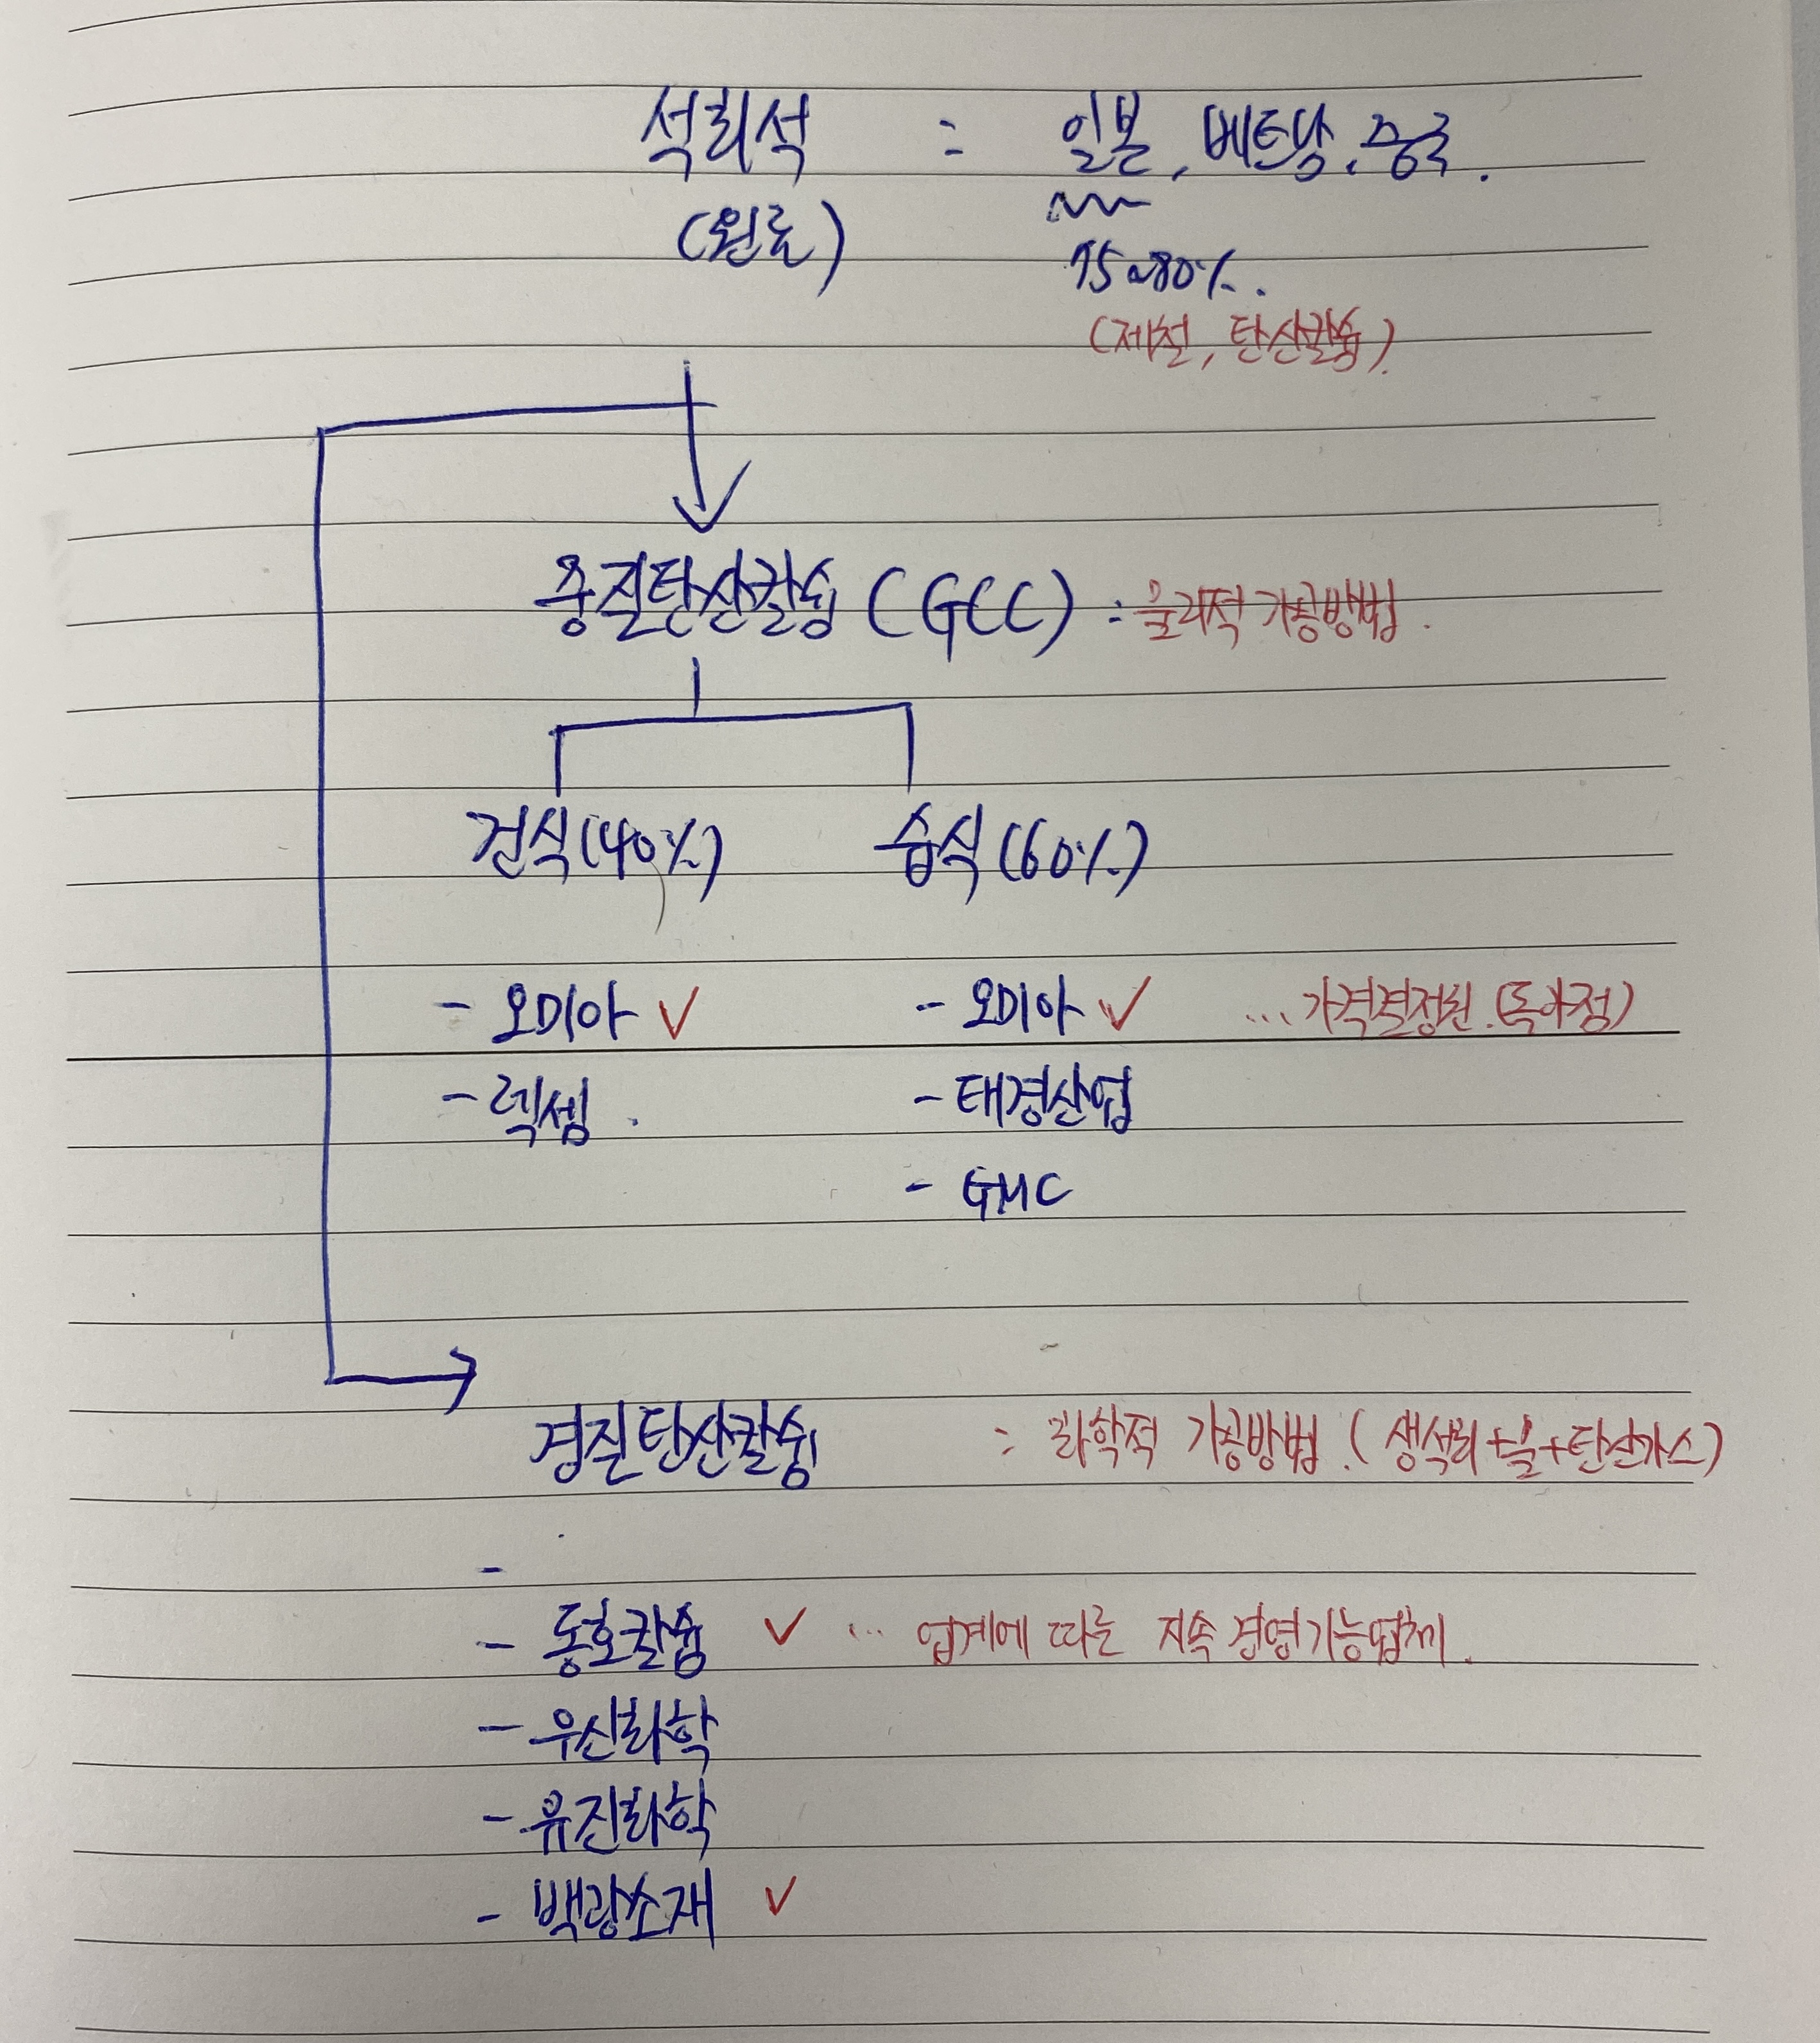 석회석 : 일본, 베트남, 중국.
(원료)
75~80%.
(제철, 탄산칼슘).
중질탄산칼슘 (GCC) : 물리적 가공방법.
건식(40%) 습식(60%)
- 오미아 ✓ - 오미아 ✓ ... 가격결정권.(독과점)
- 렉셈. - 태경산업
- GMC
경질탄산칼슘 : 화학적 가공방법.(생석회+물+탄산가스)
-
- 동호칼슘 ✓ ... 업계에 따른 지속 경영가능업체.
- 우신화학
- 유진화학
- 백광소재 ✓